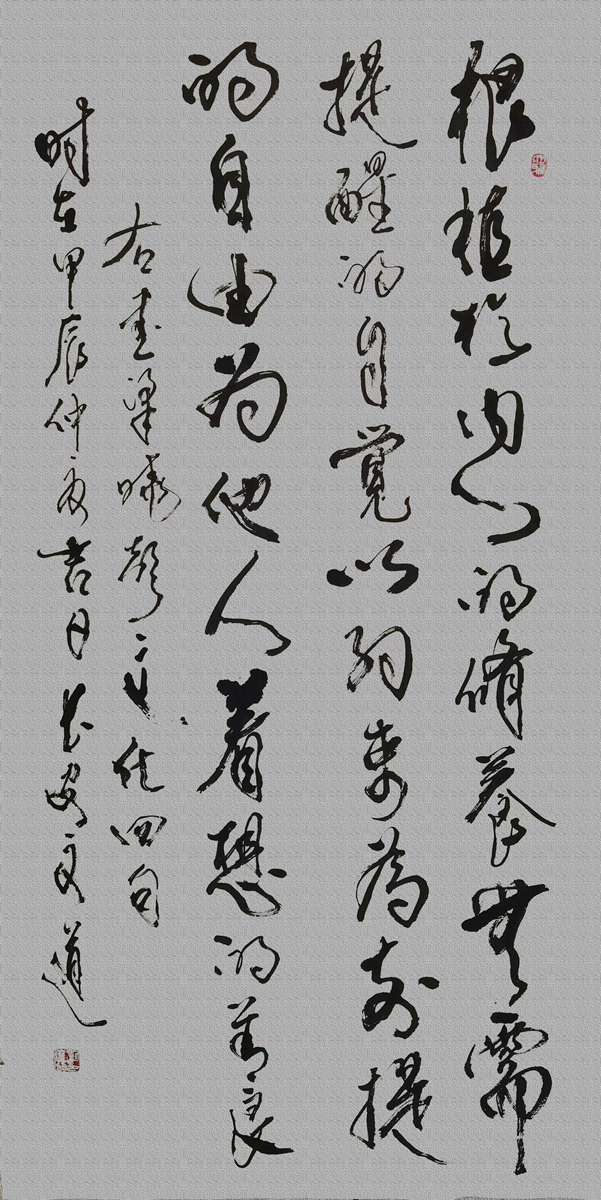 根植於内心的脩養無需
提醒的自覺以约束為前提
的自由为他人着想的善良
右書梁曉聲文化四句
时在甲辰仲夏吉日长安文道